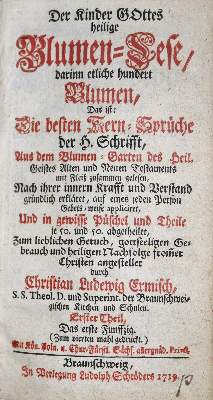 Der Kinder GOttes
heilige
Blumen-Lese,
darinn etliche hundert
Blumen,
Das ist:
Die besten Kern-Sprüche
der H. Schrifft,
Aus dem Blumen-Garten des Heil.
Geistes Alten und Neuen Testaments
mit Fleiß zusammen gelesen,
Nach ihrer innern Krafft und Verstand
gründlich erkläret, auf eines jeden Person
Gebets-weise appliciret,
Und in gewisse Püschel und Theile
je 50. und 50. abgetheilet,
Zum lieblichen Geruch, gottseeligen Ge-
brauch und heiligen Nachfolge frommer
Christen angestellet
durch
Christian Ludewig Ermisch,
S. S. Theol. D. und Superint. der Braunschwei-
gischen Kirchen und Schulen.
Erster Theil,
Das erste Funffzig.
(Zum vierten mahl gedruckt.)
Mit Kön. Poln. u. Chur-Fürstl. Sächs. allergnäd. Privil.
Braunschweig,
In Verlegung Ludolph Schröders 1719.